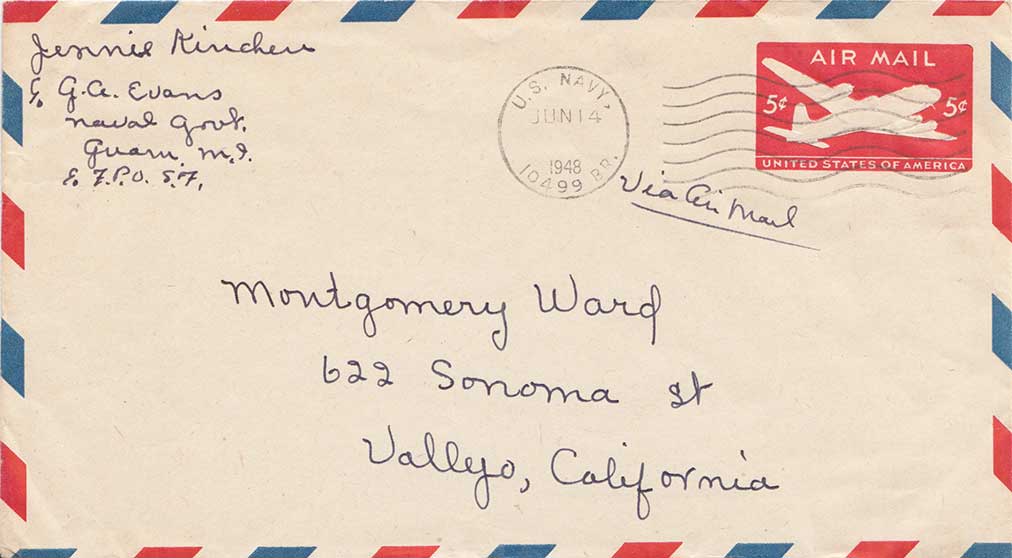 Jennie Kinchen
℅ G.A. Evans
Naval Govt.
Guam, M.I.
℅ F.P.O. S.F.
U.S. NAVY
JUN 14
1948
10499 BR.
AIR MAIL
5¢ 5¢
UNITED STATES OF AMERICA
Via Air Mail
Montgomery Ward
622 Sonoma St
Vallejo, California